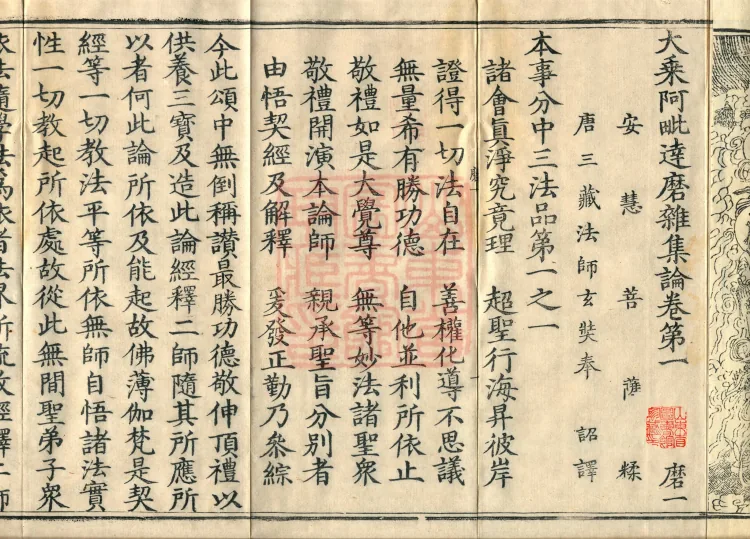 大乘阿毗達磨雜集論卷第一 磨一
安慧菩薩糅
唐三藏法師玄奘奉 詔譯
本事分中三法品第一之一
諸會真淨究竟理 超聖行海昇彼岸
證得一切法自在 善權化導不思議
無量希有勝功德 自他並利所依止
敬禮如是大覺尊 無等妙法諸聖衆
敬禮開演本論師 親承聖旨分別者
由悟契經及解釋 爰發正勤乃參綜
今此頌中無倒稱讚最勝功德敬伸頂禮以
供養三寶及造此論經釋二師隨其所應所
以者何此論所依及能起故佛薄伽梵是契
經等一切教法平等所依無師自悟諸法實
性一切教起所依處故從此無間聖弟子衆
依法隨學法爲依者法界所流故經釋二師